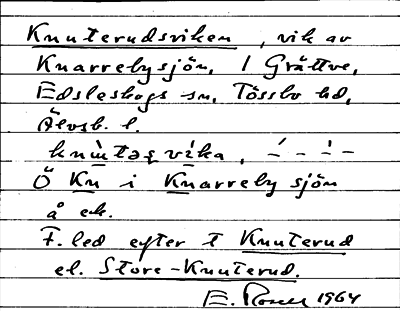 Knuterudsviken, vik av
Knarrebysjön, i Grättve,
Edsleskogs sn, Tössbo hd,
Älvsb. l.
knùtəsvìka, –́ – –̀ –
Ö Kn i Knarrebysjön
å ek.
F. led efter t Knuterud
el. Store-Knuterud.
E. 1964